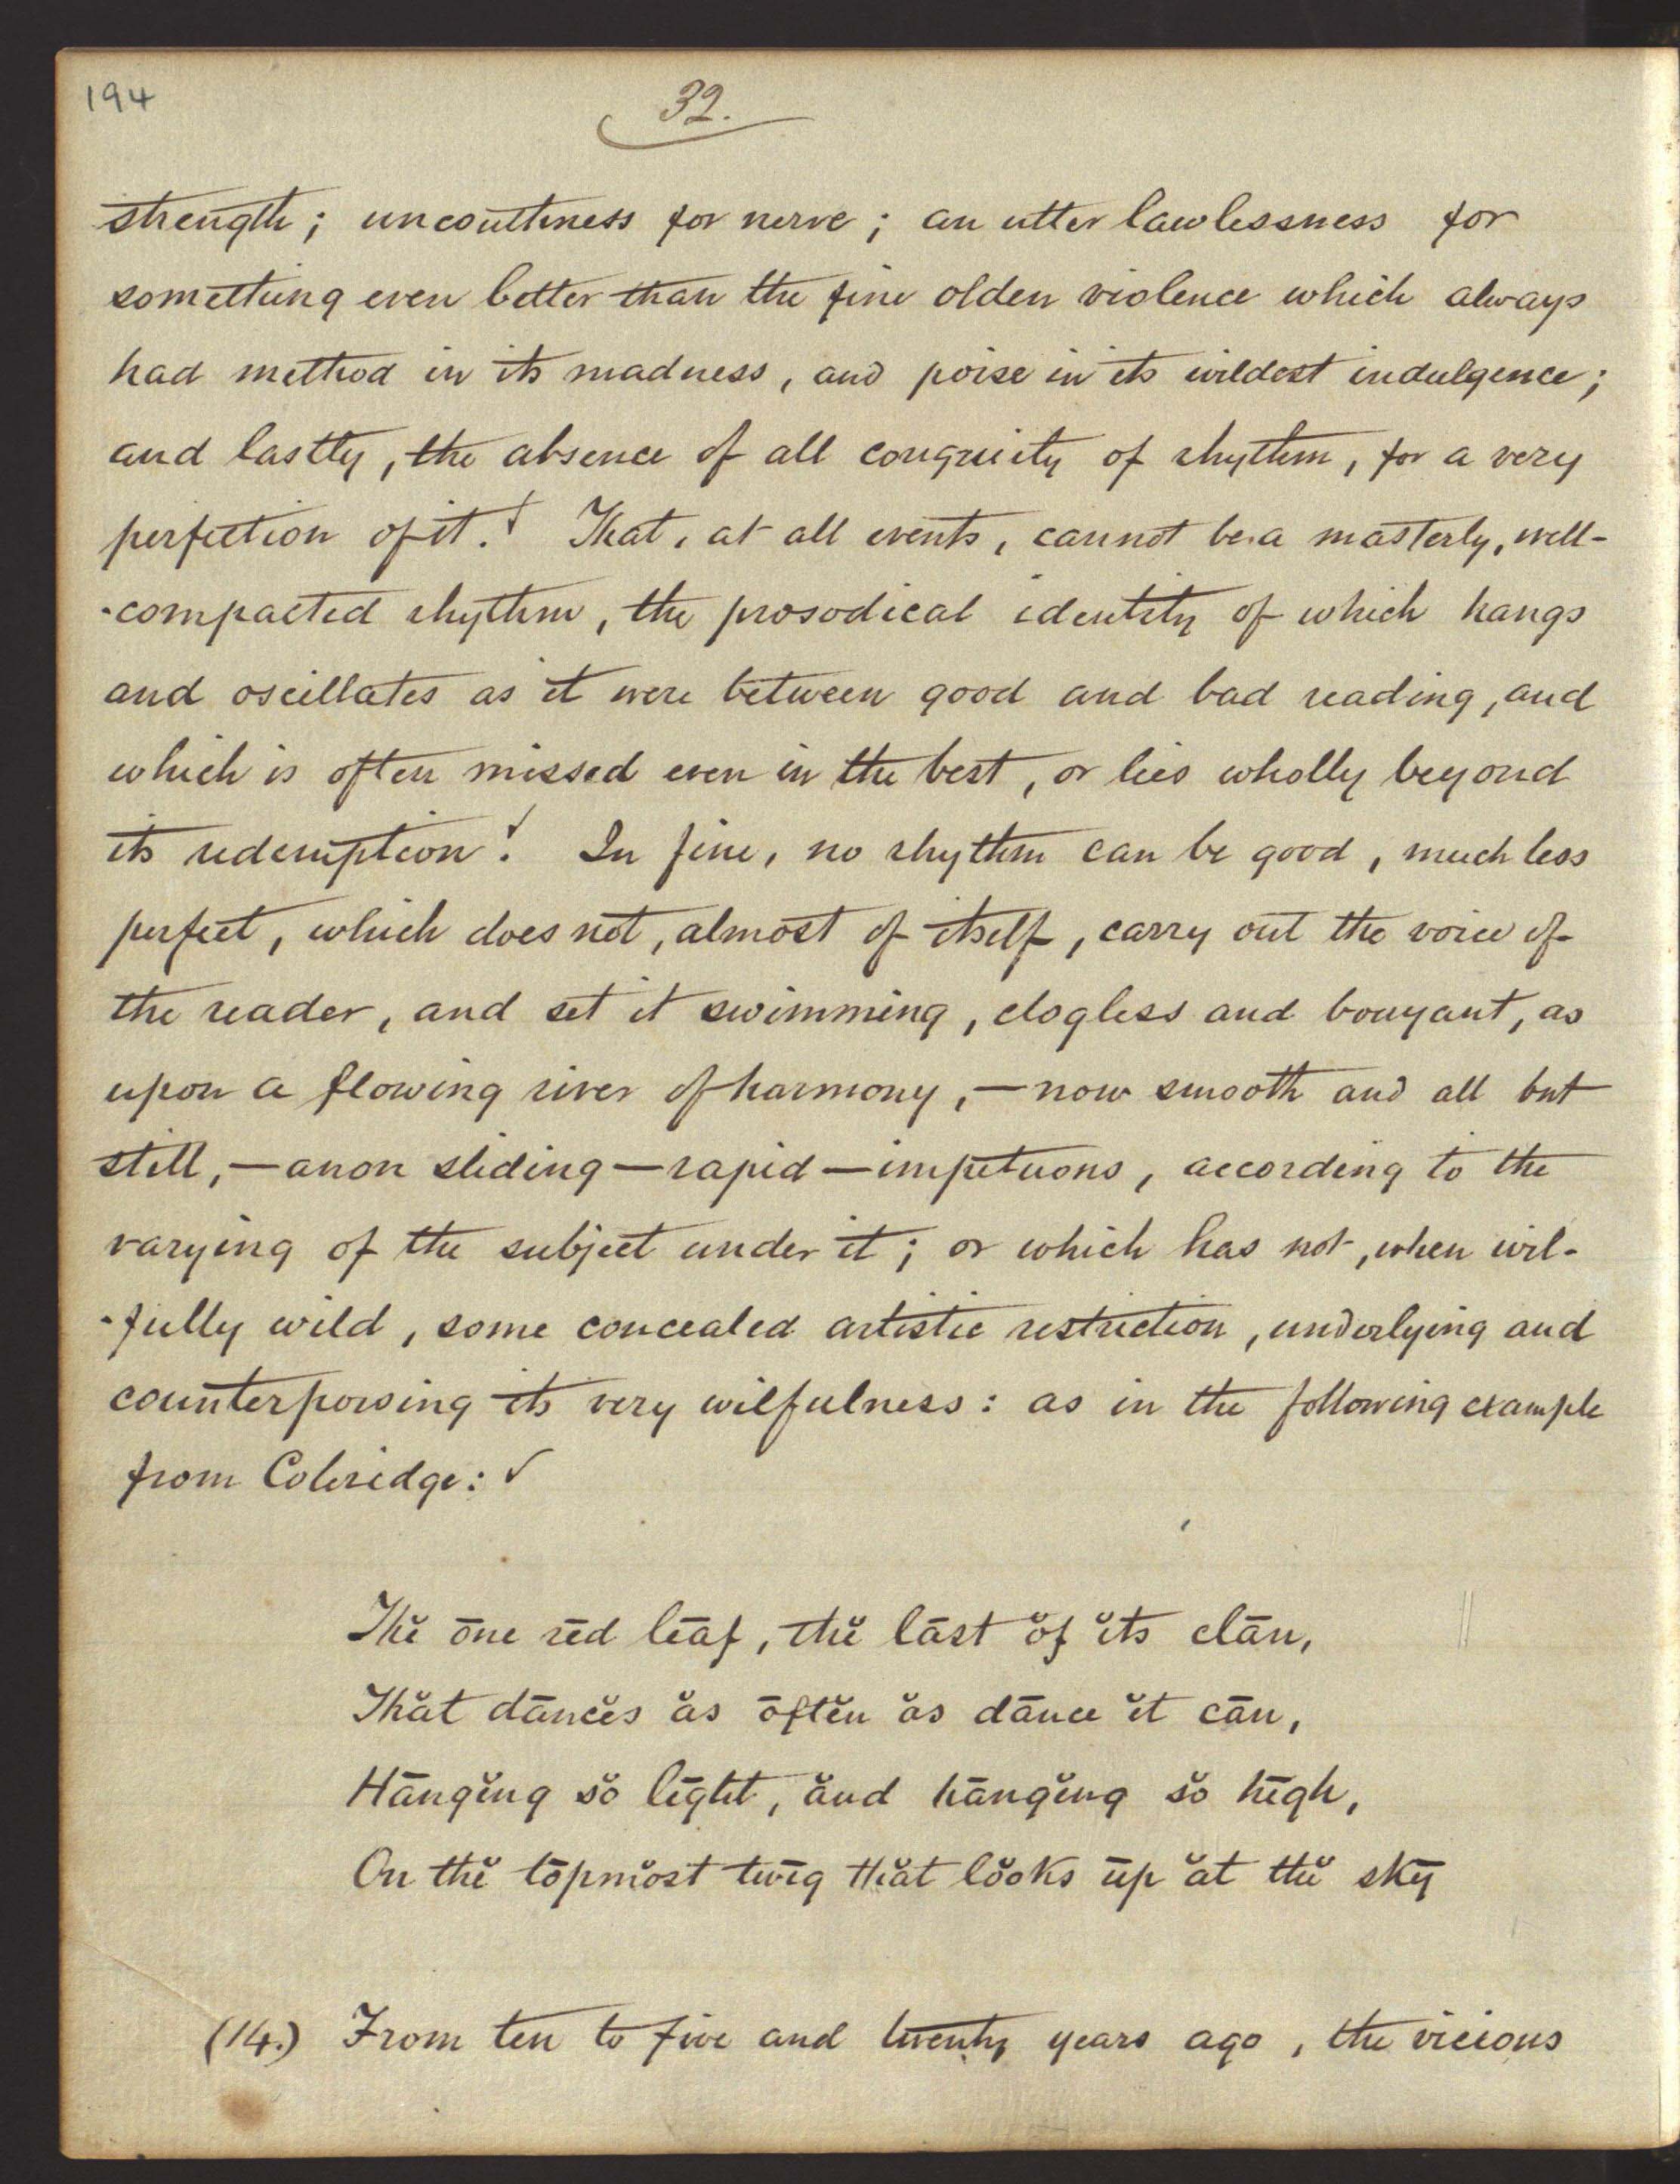 194
32.
strength; uncouthness for nerve; an utter lawlessness for
something even better than the fine olden violence which always
had method in its madness, and poise in its wildest indulgence;
and lastly, the absence of all congruity of rhythm, for a very
perfection of it! That, at all events, cannot be a masterly, well-
-compacted rhythm, the prosodical identity of which hangs
and oscillates as it were between good and bad reading, and
which is often missed even in the best, or lies wholly beyond
its redemption! In fine, no rhythm can be good, much less
perfect, which does not, almost of itself, carry out the voice of
the reader, and set it swimming, clogless and bouyant, as
upon a flowing river of harmony,—now smooth and all but
still,—anon sliding—rapid—impetuous, according to the
varying of the subject under it; or which has not, when wil-
-fully wild, some concealed artistic restriction, underlying and
counterpoising its very wilfulness: as in the following example
from Coleridge: ✓
Thĕ ōne rēd lēaf, thĕ lāst ŏf ĭts clān,
Thăt dāncĕs ăs ōftĕn ăs dānce ĭt cān,
Hāngĭng sŏ līght, ănd hāngĭng sŏ hīgh,
On thĕ tōpmŏst twīg thăt lŏoks ūp ăt thĕ skȳ
(14.) From ten to five and twenty years ago, the vicious